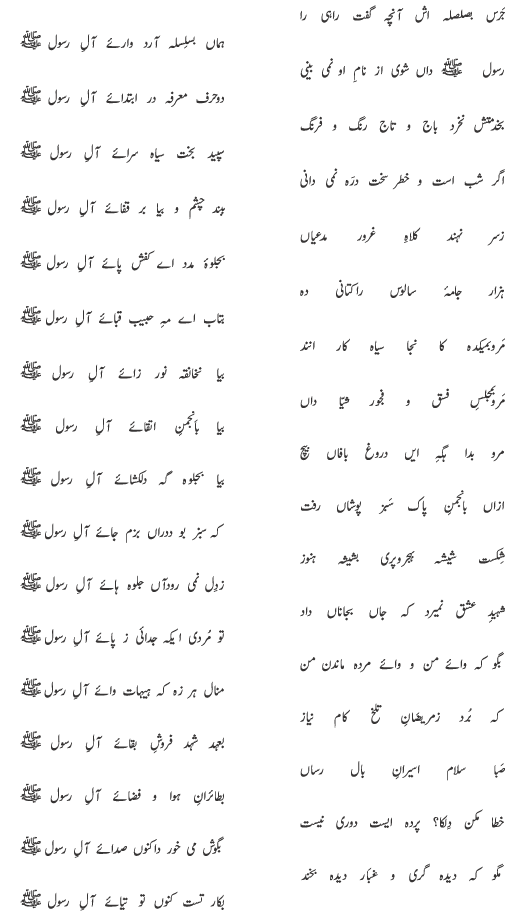 جَرس بصلصلہ اش آنچہ گفت راہی را
ہماں بسلِسلہ آرد وارئے آلِ رسول ﷺ
رسول ﷺ داں شوی از نامِ او نمی بینی
دوحرف معرفہ در ابتدائے آلِ رسول ﷺ
بخدمتش نخرد باج و تاج رنگ و فرنگ
سپید بخت سیاہ سرائے آلِ رسول ﷺ
اگر شب است و خطر سخت ورَہ نمی دانی
ببند چشم و بیا بر قفائے آلِ رسول ﷺ
زسر نہند کلاہِ غرور مدعیاں
بجلوۂ مدد اے کفش پائے آلِ رسول ﷺ
ہزار جامۂ سالوس را کتانی دہ
بتاب اے مہِ حبیب قبائے آلِ رسول ﷺ
مَرو بمیکدہ کا نجا سیاہ کار انند
بیا نخانقہ نور زائے آلِ رسول ﷺ
مَرو بمجلسِ فسق و فجور شیّا داں
بیا بانجمنِ اتقائے آلِ رسول ﷺ
مرو بدا مگہِ ایں دروغ بافاں ہیچ
بیا بجلوہ گہ دلکشائے آلِ رسول ﷺ
ازاں بانجمنِ پاک سَبز پوشاں رفت
کہ سبز بو ددراں بزم جائے آلِ رسول ﷺ
شِکست شیشہ بہجروپری بشیشہ ہنوز
زدِل نمی رودآں جلوہ ہائے آلِ رسول ﷺ
شہیدِ عشق نمیرد کہ جاں بجاناں داد
تو مُردی ایکہ جدائی ز پائے آلِ رسول ﷺ
بگو کہ وائے من و وائے مردہ ماندن من
منال ہر زہ کہ ہیہات وائے آلِ رسول ﷺ
کہ بُرد زمریضانِ تلخ کام نیاز
بعہد شہد فروشِ بقائے آلِ رسول ﷺ
صَبا سلام اسیرانِ بال رساں
بطائرانِ ہوا و فضائے آلِ رسول ﷺ
خطا مکن دِلکا؟ پردہ ایست دوری نیست
بگوش می خور داکنوں صدائے آلِ رسول ﷺ
مگو کہ دیدہ گری و غبار دیدہ بخند
بکار تست کنوں تو تیائے آلِ رسول ﷺ